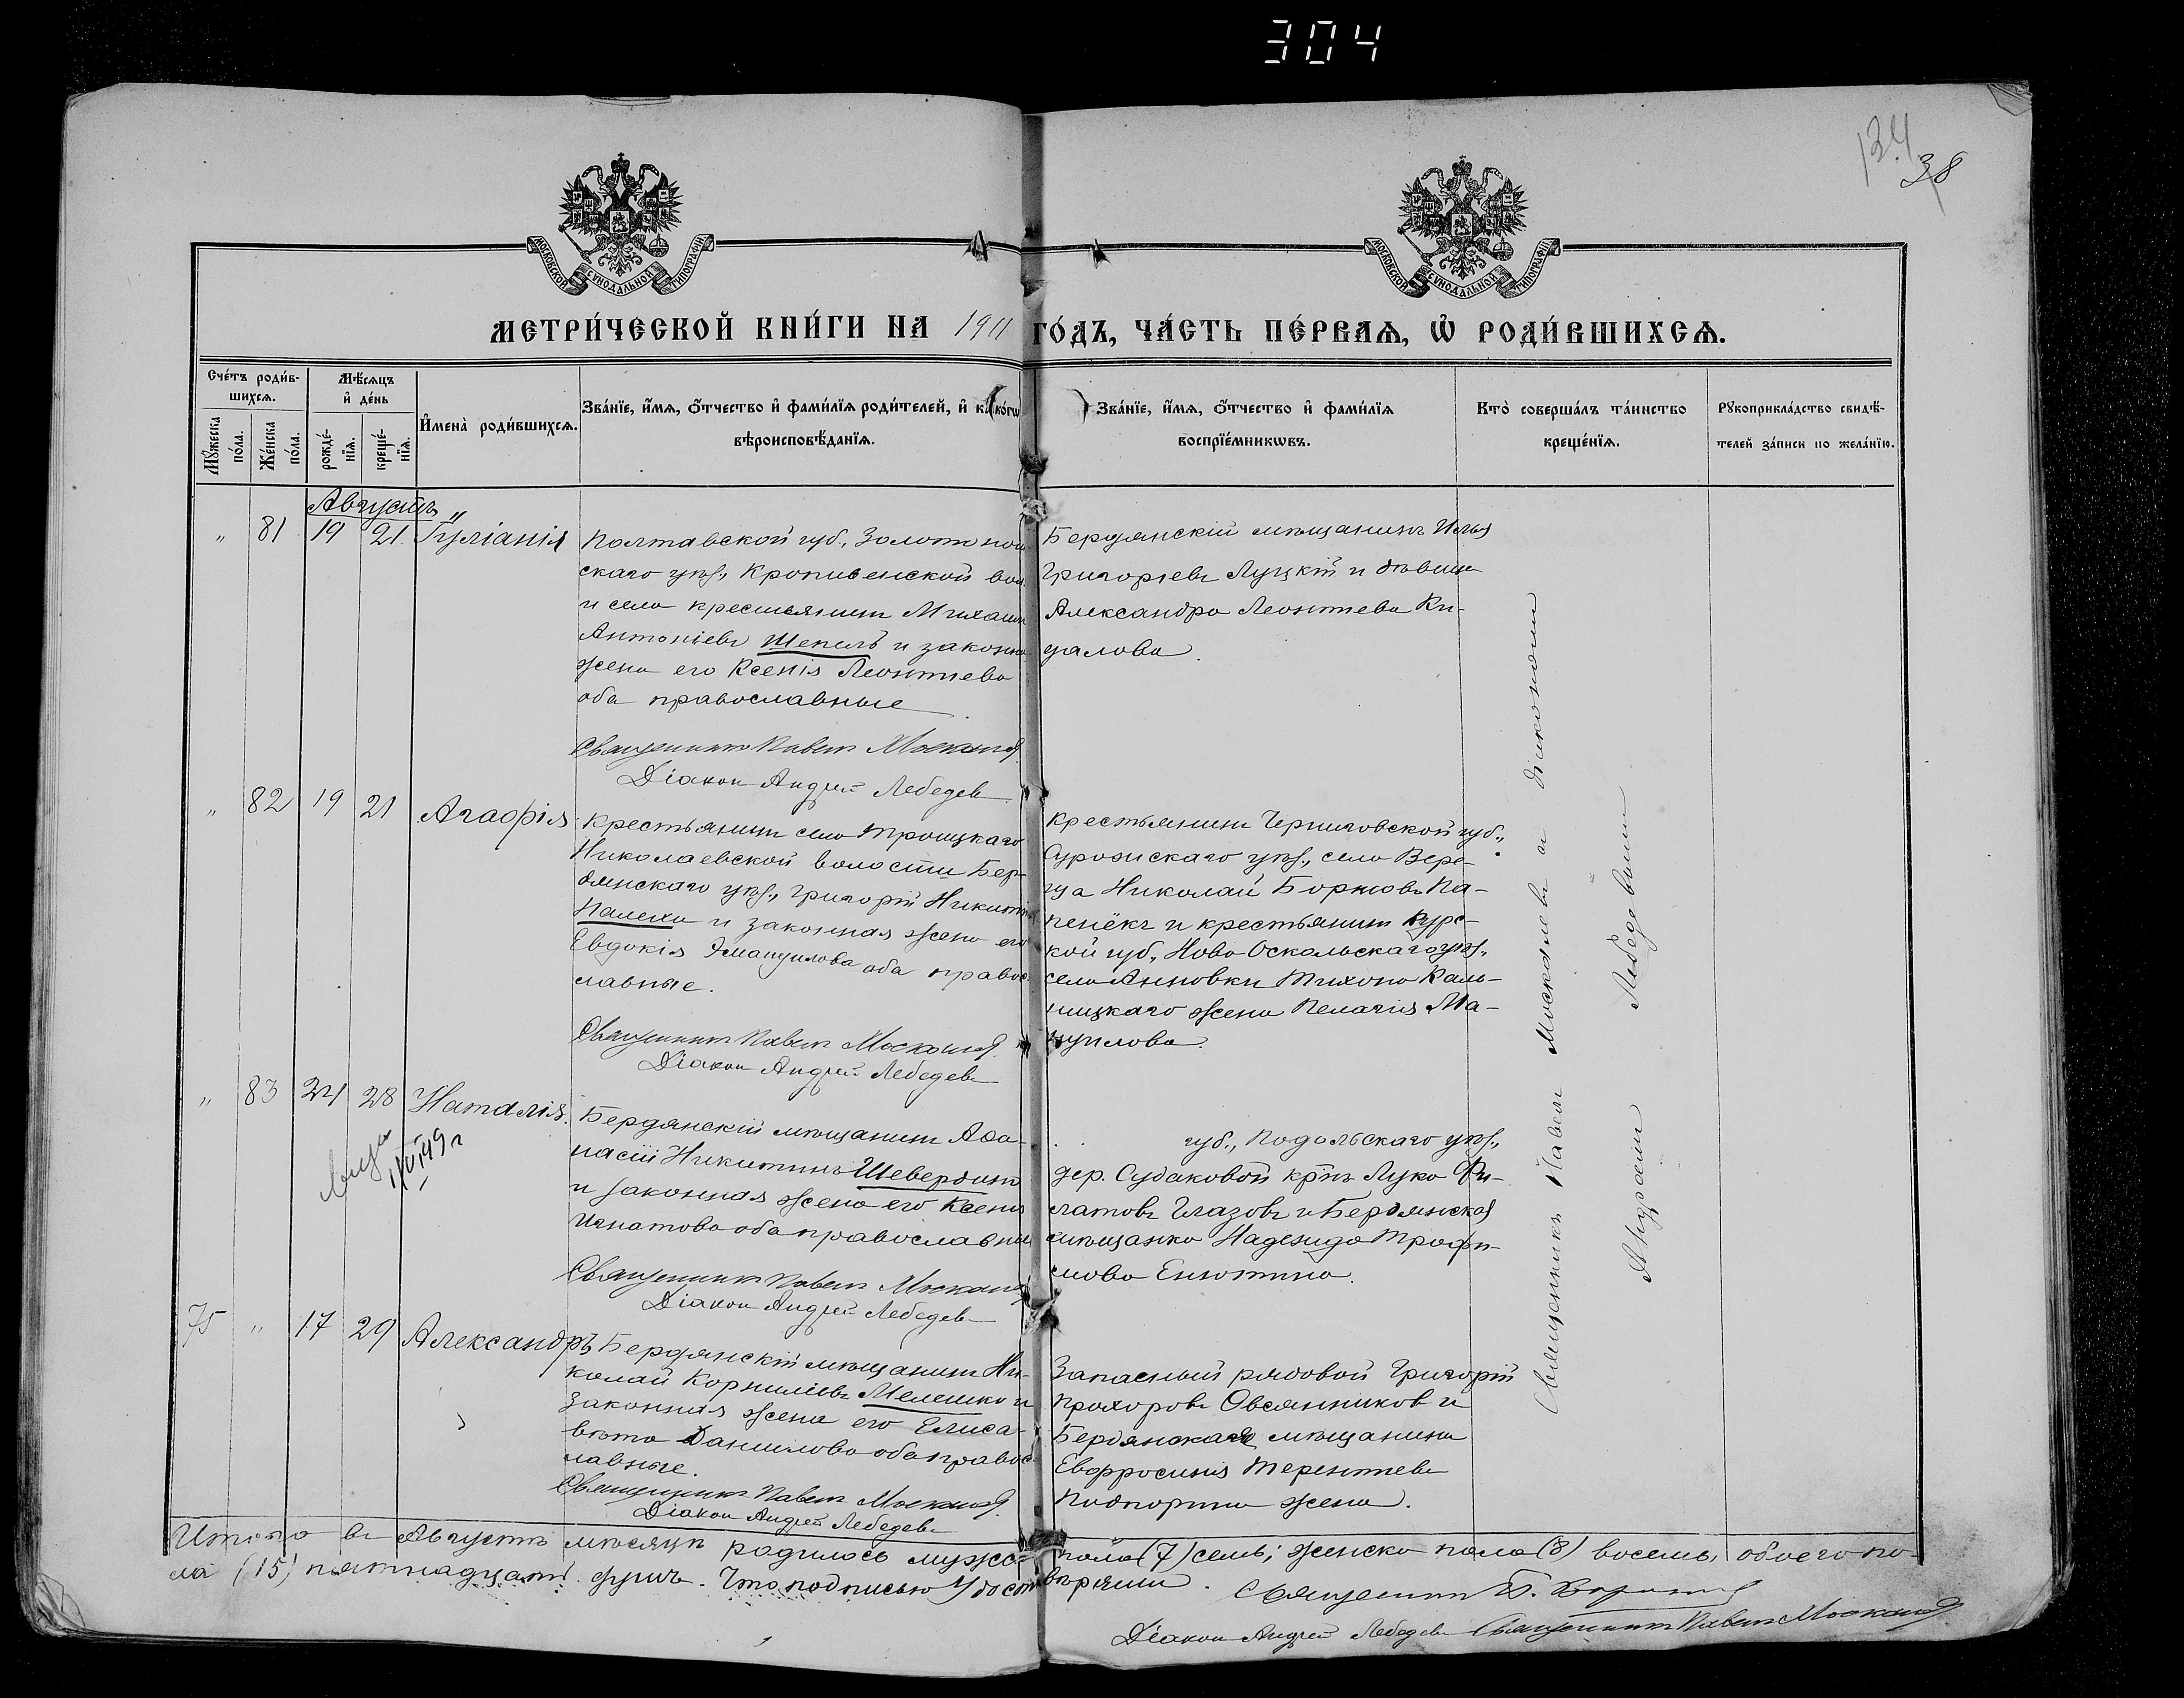 304
134
38
МОСКОВСКОЙ СѴНОДАЛЬНОЙ ТИПОГРАФІИ
МОСКОВСКОЙ СѴНОДАЛЬНОЙ ТИПОГРАФІИ
МЕТРИ́ЧЕСКОЙ КНИ́ГИ НА 1911 ГО́ДЪ, ЧА́СТЬ ПЕ́РВАѦ, Ѡ҆ РОДИ́ВШИХСѦ.
Сче́тъ роди́в-
шихсѧ.
Мꙋ́жеска по́ла.
Же́нска по́ла.
Мѣ́сѧцъ
и҆ де́нь
рожде́-
нїѧ.
креще́-
нїѧ.
И҆мена̀ роди́вшихсѧ.
Зва́нїе, и҆́мѧ, ѻ҆́тчество и҆ фами́лїѧ роди́телей, и҆ како́гѡ
вѣроисповѣ́данїѧ.
Зва́нїе, и҆́мѧ, ѻ҆́тчество и҆ фами́лїѧ
воспрїе́мникѡвъ.
Кто̀ соверша́лъ та́инство
креще́нїѧ.
Рꙋкоприкла́дство свидѣ́-
телей за́писи по жела́нїю.
Августъ
" 81 19 21 Іуліанія
Полтавской губ., Золотонош-
скаго уѣз., Кропивенской вол.
и села крестьянинъ Михаилъ
Антоніевъ Шепель и законна
жена его Ксенія Леонтиева
оба православные.
Священникъ Павелъ Москалевъ
Діаконъ Андрей Лебедевъ
Бердянскій мѣщанинъ Илья
Григоріевъ Луцкій и дѣвица
Александра Леонтиева Ки-
далова.
" 82 19 21 Агафія
Крестьянинъ села Троицкаго
Николаевской волости Бер-
дянскаго уѣз., Григорій Никит
Палеха и законная жена его
Евдокія Эмануилова оба правос-
лавные.
Священникъ Павелъ Москалевъ
Діаконъ Андрей Лебедевъ
Крестьянинъ Черниговской губ.,
Суражскаго уѣз., села Вере-
ца Николай Борисовъ Па-
пенёкъ и крестьянина Курс-
кой губ., Ново Оскольскаго уѣз.,
села Анновки Тихона Каль-
ницкаго жена Пелагія Ма-
нуилова.
" 83 24 28 Наталія.
1/VI 49 г
Бердянскій мѣщанинъ Афа-
насій Никитинъ Шевердинъ
и законная жена его Ксенія
Игнатова оба православные
Священникъ Павелъ Москалевъ
Діаконъ Андрей Лебедевъ
губ., Подольскаго уѣз.,
дер. Судаковой крнъ Лука Фи-
латовъ Глазовъ и Бердянская
мѣщанка Надежда Трофи-
мова Енютина.
75 " 17 29 Александръ
Бердянскій мѣщанинъ Ни-
колай Корниліевъ Мелешко и
законная жена его Елиса-
вета Данилова оба правос-
лавные.
Священникъ Павелъ Москалевъ
Діаконъ Андрей Лебедевъ
Запасный рядовой Григорій
Прохоровъ Овсянников и
Бердянскаго мѣщанина
Евфросинія Терентиева
Подпорина жена.
Священникъ Павелъ Москалевъ и діаконом
Андреем Лебедевымъ
Итого въ Августѣ мѣсяцѣ родилось мужс. пола (7) семь; женска пола (8) восемь, обоего по-
ла (15) пятнадцать душъ. Что подписью удостовѣряемъ.
Священникъ
Діаконъ Андрей Лебедевъ Священникъ Павелъ Москалевъ